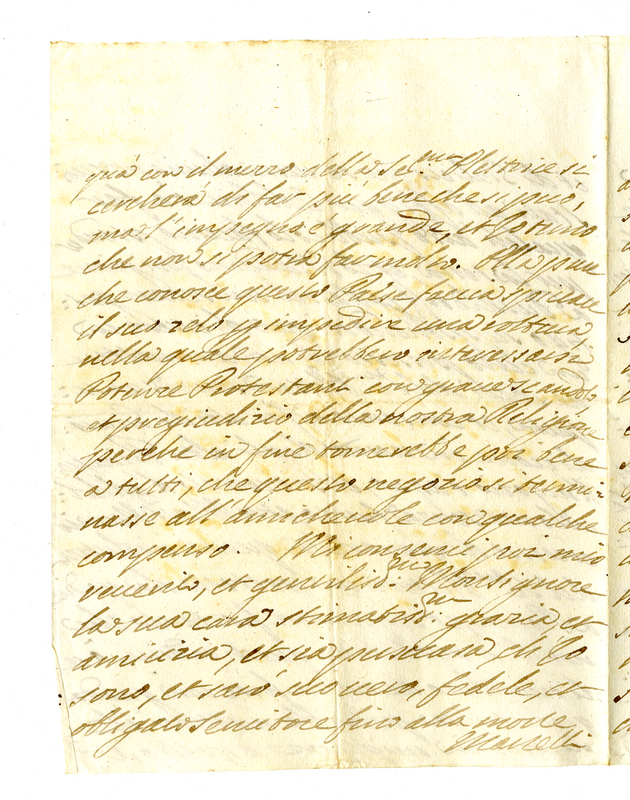 quà con il mezzo della Se.ma Elettrice si
cercherà di far più bene che si può,
ma l'impegno è grande, et Io temo
che non si potrà far molto. Ella pure
che conosce questo Paese faccia spiccare
il suo zelo p impedire una rottura
nella quale potrebbero interessarsi
Potenze Protestanti con grave scandolo
et pregiudizio della nostra Religione
perche in fine tornerebbe poi bene
a tutti, che questo negozio si termi-
nasse all'amichevole con qualche
compenso. Mi conservi poi mio
venerito, et gentiliss.mo Monsignore
la sua cara stimatiss.ma grazia, et
amicizia, et sia persuasa ch'Io
sono, et sarò suo vero, fedele, et
obligato Servitore fino alla morte